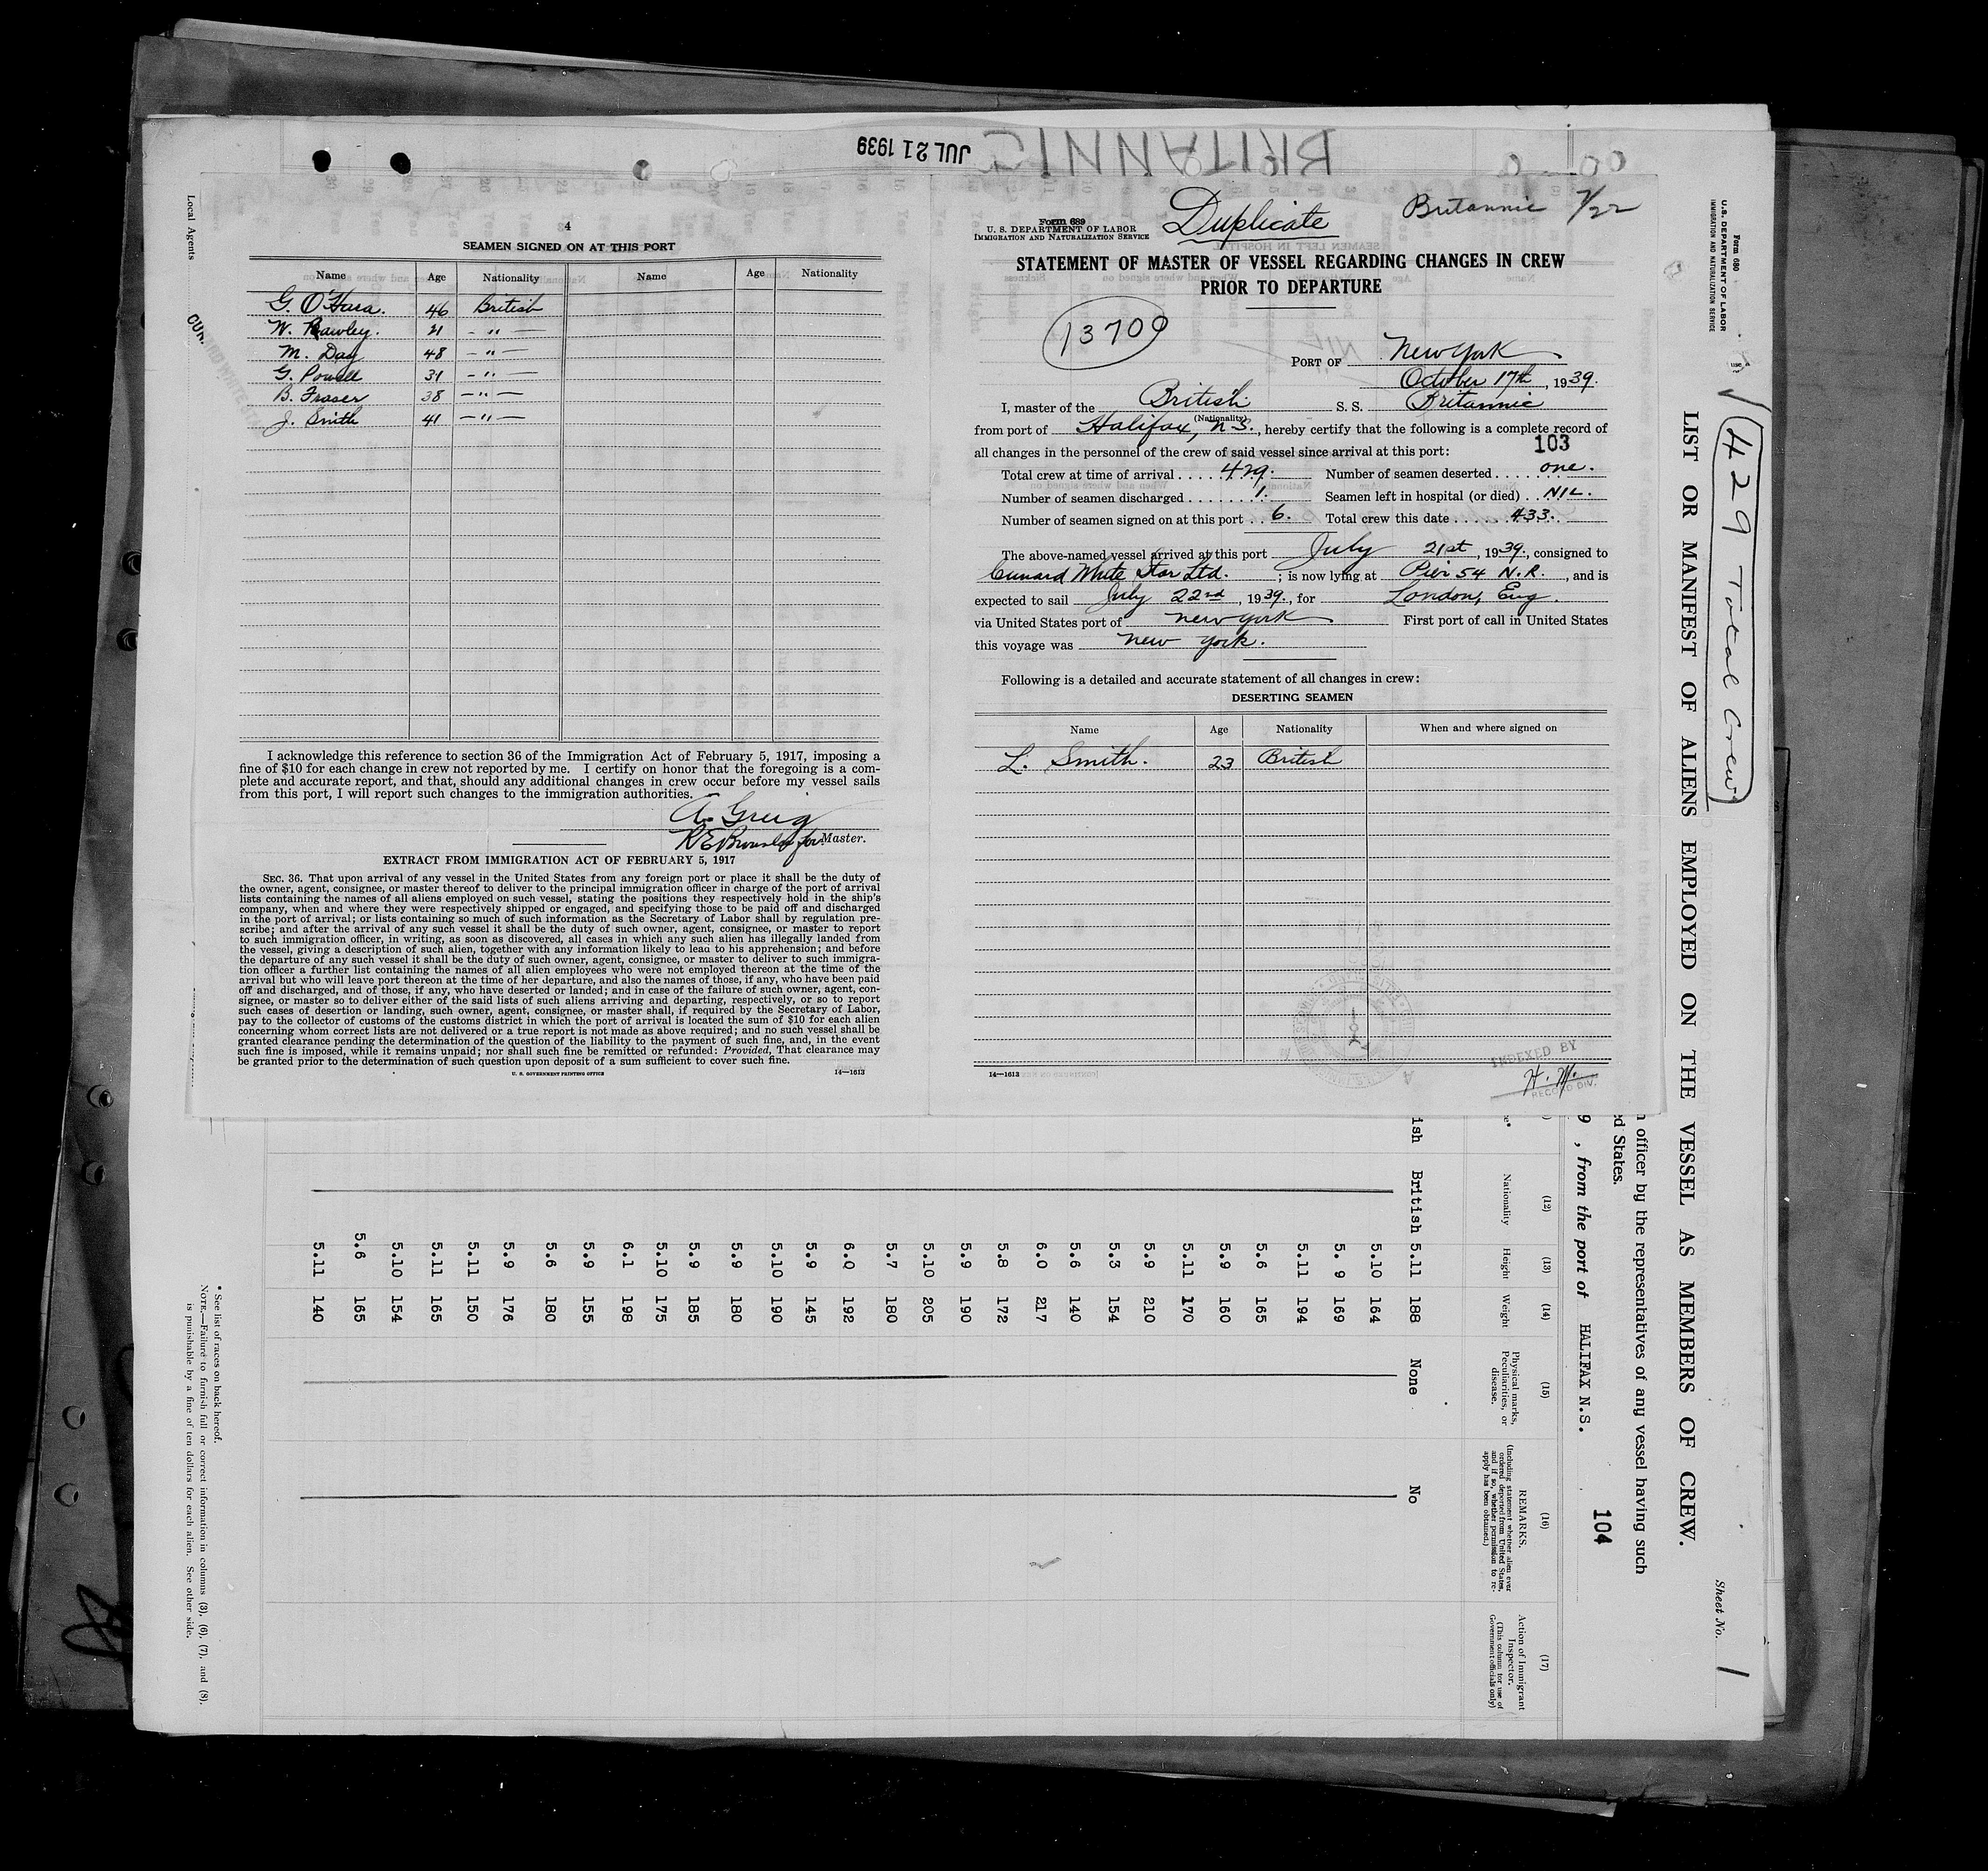 JUL 21 1939
BRITANNIC
Local Agents
4
SEAMEN SIGNED ON AT THIS PORT
Name Age Nationality Name Age Nationality
G. O'Hara. 46 British
W. Rawley. 21 - " -
M. Day 48 - " -
G. Powell 31 - " -
B. Fraser 38 - " -
J. Smith 41 - " -
I acknowledge this reference to section 36 of the Immigration Act of February 5, 1917, imposing a
fine of $10 for each change in crew not reported by me. I certify on honor that the foregoing is a com-
plete and accurate report, and that, should any additional changes in crew occur before my vessel sails
from this port, I will report such changes to the immigration authorities.
A. Greig
for Master.
EXTRACT FROM IMMIGRATION ACT OF FEBRUARY 5, 1917
SEC. 36. That upon arrival of any vessel in the United States from any foreign port or place it shall be the duty of
the owner, agent, consignee, or master thereof to deliver to the principal immigration officer in charge of the port of arrival
lists containing the names of all aliens employed on such vessel, stating the positions they respectively hold in the ship's
company, when and where they were respectively shipped or engaged, and specifying those to be paid off and discharged
in the port of arrival; or lists containing so much of such information as the Secretary of Labor shall by regulation pre-
scribe; and after the arrival of any such vessel it shall be the duty of such owner, agent, consignee, or master to report
to such immigration officer, in writing, as soon as discovered, all cases in which any such alien has illegally landed from
the vessel, giving a description of such alien, together with any information likely to lead to his apprehension; and before
the departure of any such vessel it shall be the duty of such owner, agent, consignee, or master to deliver to such immigra-
tion officer a further list containing the names of all alien employees who were not employed thereon at the time of the
arrival but who will leave port thereon at the time of her departure, and also the names of those, if any, who have been paid
off and discharged, and of those, if any, who have deserted or landed; and in case of the failure of such owner, agent, con-
signee, or master so to deliver either of the said lists of such aliens arriving and departing, respectively, or so to report
such cases of desertion or landing, such owner, agent, consignee, or master shall, if required by the Secretary of Labor,
pay to the collector of customs of the customs district in which the port of arrival is located the sum of $10 for each alien
concerning whom correct lists are not delivered or a true report is not made as above required; and no such vessel shall be
granted clearance pending the determination of the question of the liability to the payment of such fine, and, in the event
such fine is imposed, while it remains unpaid; nor shall such fine be remitted or refunded: Provided, That clearance may
be granted prior to the determination of such question upon deposit of a sum sufficient to cover such fine.
U. S. GOVERNMENT PRINTING OFFICE 14—1613
Form 689
U. S. DEPARTMENT OF LABOR
IMMIGRATION AND NATURALIZATION SERVICE
Duplicate
Britannic 7/22
STATEMENT OF MASTER OF VESSEL REGARDING CHANGES IN CREW
PRIOR TO DEPARTURE
13709
PORT OF New York
October 17th, 1939.
I, master of the British S. S. Britannic
(Nationality)
from port of Halifax, N.S., hereby certify that the following is a complete record of
all changes in the personnel of the crew of said vessel since arrival at this port:
103
Total crew at time of arrival ..... 429. Number of seamen deserted ..... one.
Number of seamen discharged ...... 1. Seamen left in hospital (or died) .. NIL.
Number of seamen signed on at this port .. 6. Total crew this date ...... 433.
The above-named vessel arrived at this port July 21st, 1939., consigned to
Cunard White Star Ltd. ; is now lying at Pier 54 N.R. , and is
expected to sail July 22nd, 1939., for London, Eng.
via United States port of New York First port of call in United States
this voyage was New York.
Following is a detailed and accurate statement of all changes in crew:
DESERTING SEAMEN
Name Age Nationality When and where signed on
L. Smith. 23 British
INDEXED BY
H. M.
RECORD DIV.
14—1613
Form 680
U. S. DEPARTMENT OF LABOR
IMMIGRATION AND NATURALIZATION SERVICE
429 Total Crew
Sheet No. 1
LIST OR MANIFEST OF ALIENS EMPLOYED ON THE VESSEL AS MEMBERS OF CREW.
officer by the representatives of any vessel having such
ed States.
104
9 , from the port of HALIFAX N.S.
(12) (13) (14) (15) (16) (17)
Nationality Height Weight Physical marks, Peculiarities, or disease. REMARKS. (Including statement whether alien ever ordered deported from United States, and if so, whether permission to re-apply has been obtained.) Action of Immigrant Inspector. (This column for use of Government officials only)
ish British 5.11 188 None No
5.10 164
5. 9 169
5.11 194
5.6 165
5.9 160
5.11 170
5.9 210
5.3 154
5.6 140
6.0 217
5.8 172
5.9 190
5.10 205
5.7 180
6.0 192
5.9 145
5.10 190
5.9 180
5.9 185
5.10 175
6.1 198
5.9 155
5.6 180
5.9 176
5.11 150
5.11 165
5.10 154
5.6 165
5.11 140
* See list of races on back hereof.
NOTE.—Failure to furnish full or correct information in columns (3), (6), (7), and (8).
is punishable by a fine of ten dollars for each alien. See other side.